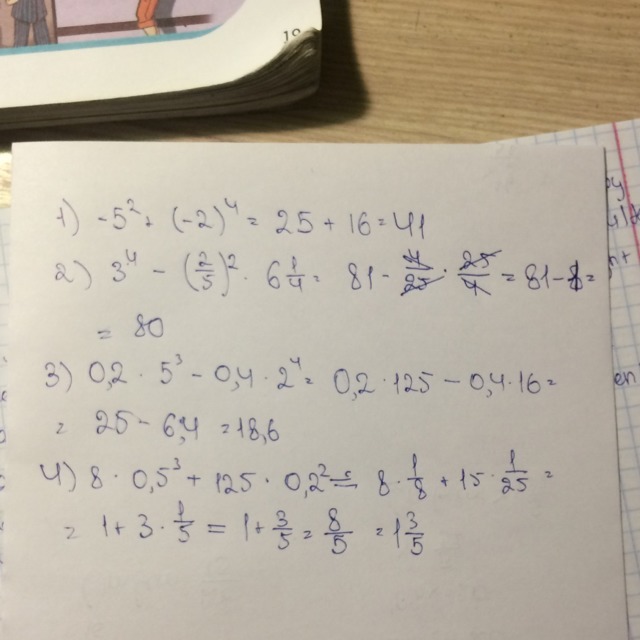 19
1) -5² + (-2)⁴ = 25 + 16 = 41
2) 3⁴ - (2/5)² · 6 1/4 = 81 - 4/25 · 25/4 = 81 - 1 =
= 80
3) 0,2 · 5³ - 0,4 · 2⁴ = 0,2 · 125 - 0,4 · 16 =
= 25 - 6,4 = 18,6
4) 8 · 0,5³ + 125 · 0,2² = 8 · 1/8 + 15 · 1/25 =
= 1 + 3 · 1/5 = 1 + 3/5 = 8/5 = 1 3/5